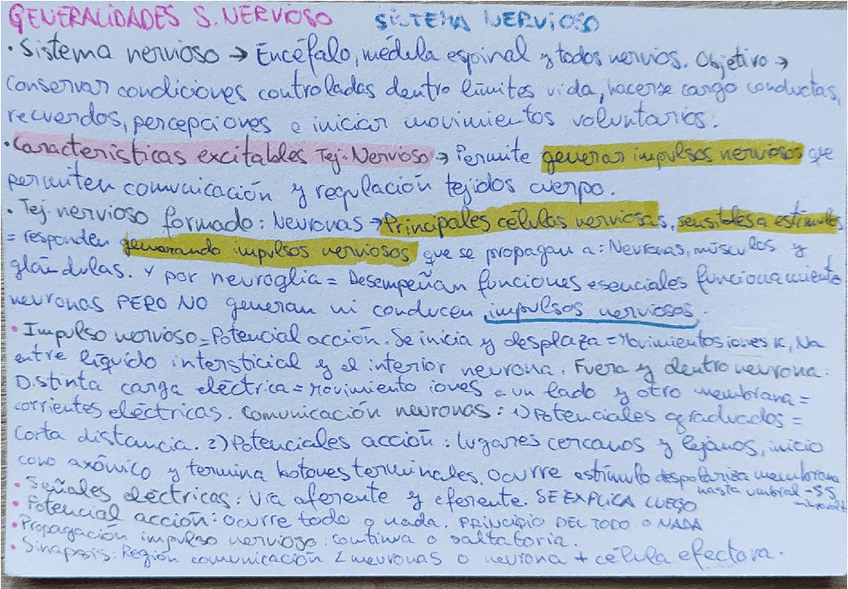 GENERALIDADES S. NERVIOSO SISTEMA NERVIOSO
• Sistema nervioso → Encéfalo, médula espinal y todos nervios. Objetivo →
conservar condiciones controladas dentro límites vida, hacerse cargo conductas,
recuerdos, percepciones e iniciar movimientos voluntarios.
• Características excitables Tej. Nervioso → Permite generar impulsos nerviosos que
permiten comunicación y regulación tejidos cuerpo.
• Tej. nervioso formado: Neuronas → Principales células nerviosas, sensibles a estímulos
= responden generando impulsos nerviosos que se propagan a: Neuronas, músculos y
glándulas. Y por neuroglia = Desempeñan funciones esenciales funcionamiento
neuronas PERO NO generan ni conducen impulsos nerviosos.
• Impulso nervioso = Potencial acción. Se inicia y desplaza = Movimientos iones K, Na
entre líquido intersticial y el interior neurona. Fuera y dentro neurona:
Distinta carga eléctrica = Movimiento iones a un lado y otro membrana =
corrientes eléctricas. Comunicación neuronas: 1) Potenciales graduados =
Corta distancia. 2) Potenciales acción: lugares cercanos y lejanos, inicio
cono axónico y termina botones terminales. Ocurre estímulo despolariza membrana
hasta umbral -55
• Señales eléctricas: Vía aferente y eferente. SE EXPLICA LUEGO
• Potencial acción: Ocurre todo o nada. PRINCIPIO DEL TODO O NADA
• Propagación impulso nervioso: continua o saltatoria.
• Sinapsis: Región comunicación 2 neuronas o neurona + célula efectora.